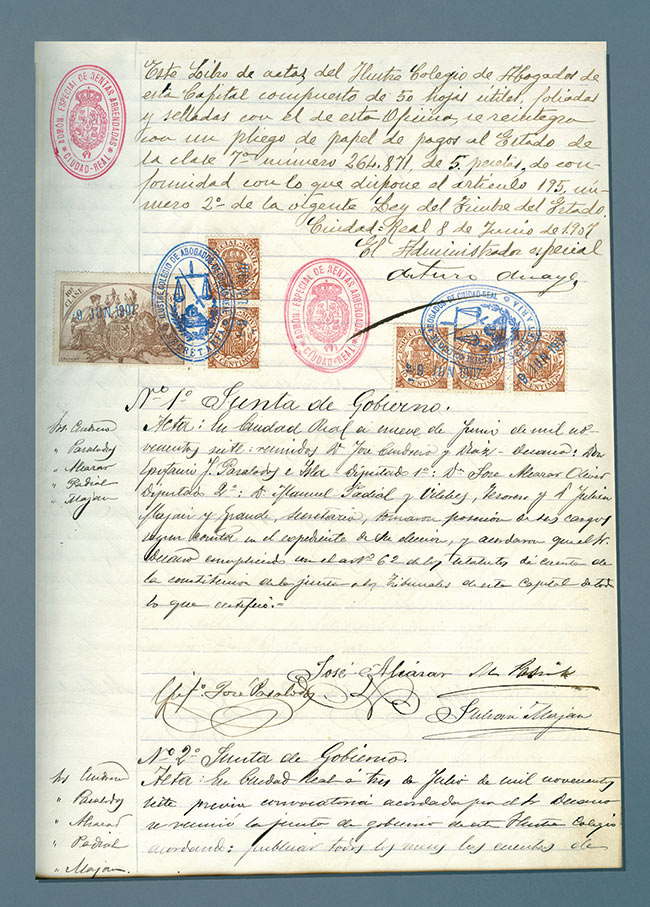 ADMON. ESPECIAL DE RENTAS ARRENDADAS
CIUDAD-REAL
Este Libro de actas del Ilustre Colegio de Abogados de
esta Capital compuesto de 50 hojas útiles, foliadas
y selladas con el de esta Oficina, se reintegra
con un pliego de papel de pagos al Estado de
la clase 7ª numero 264.871, de 5 pesetas, de con-
formidad con lo que dispone el artículo 195, nú-
mero 2º de la vigente Ley del Timbre del Estado.
Ciudad-Real 8 de Junio de 1907
El Administrador especial
Arturo
9 JUN 1907
ILUSTRE COLEGIO DE ABOGADOS DE CIUDAD-REAL
SECRETARIA
ADMON. ESPECIAL DE RENTAS ARRENDADAS
CIUDAD-REAL
ABOGADOS DE CIUDAD-REAL
SECRETARIA
9 JUN 1907
CENTIMOS
Nº 1º Junta de Gobierno.
Acta: En Ciudad Real a nueve de Junio de mil no-
vecientos siete: reunidos Dn José Cendrero y Díaz - Decano: Don
Epifanio J. Pasalodos e - Diputado 1º: Dn José Alcazar
Diputado 2º: D. Manuel Padial y Vilches, Tesorero y D Julian
Majan y Grande, Secretario, tomaron posesion de sus cargos
segun consta en el expediente de su eleccion, y acordaron que el Sr.
Decano cumpliendo con el artº 62 de los estatutos dé cuenta de
la constitucion de la junta a los Tribunales de esta Capital de todo
lo que certifico.=
Srs. Cendrero
" Pasalodos
" Alcazar
" Padial
" Majan
José Alcázar M. Padial
José Pasalodos
Julian Majan
Nº 2º Junta de Gobierno.
Acta: En Ciudad Real á tres de Julio de mil novecientos
siete previa convocatoria acordada por el Sr Decano
se reunió la junta de gobierno de este Ilustre Colegio
acordando: publicar todos los meses las cuentas de
Srs. Cendrero
" Pasalodos
" Alcazar
" Padial
" Majan.